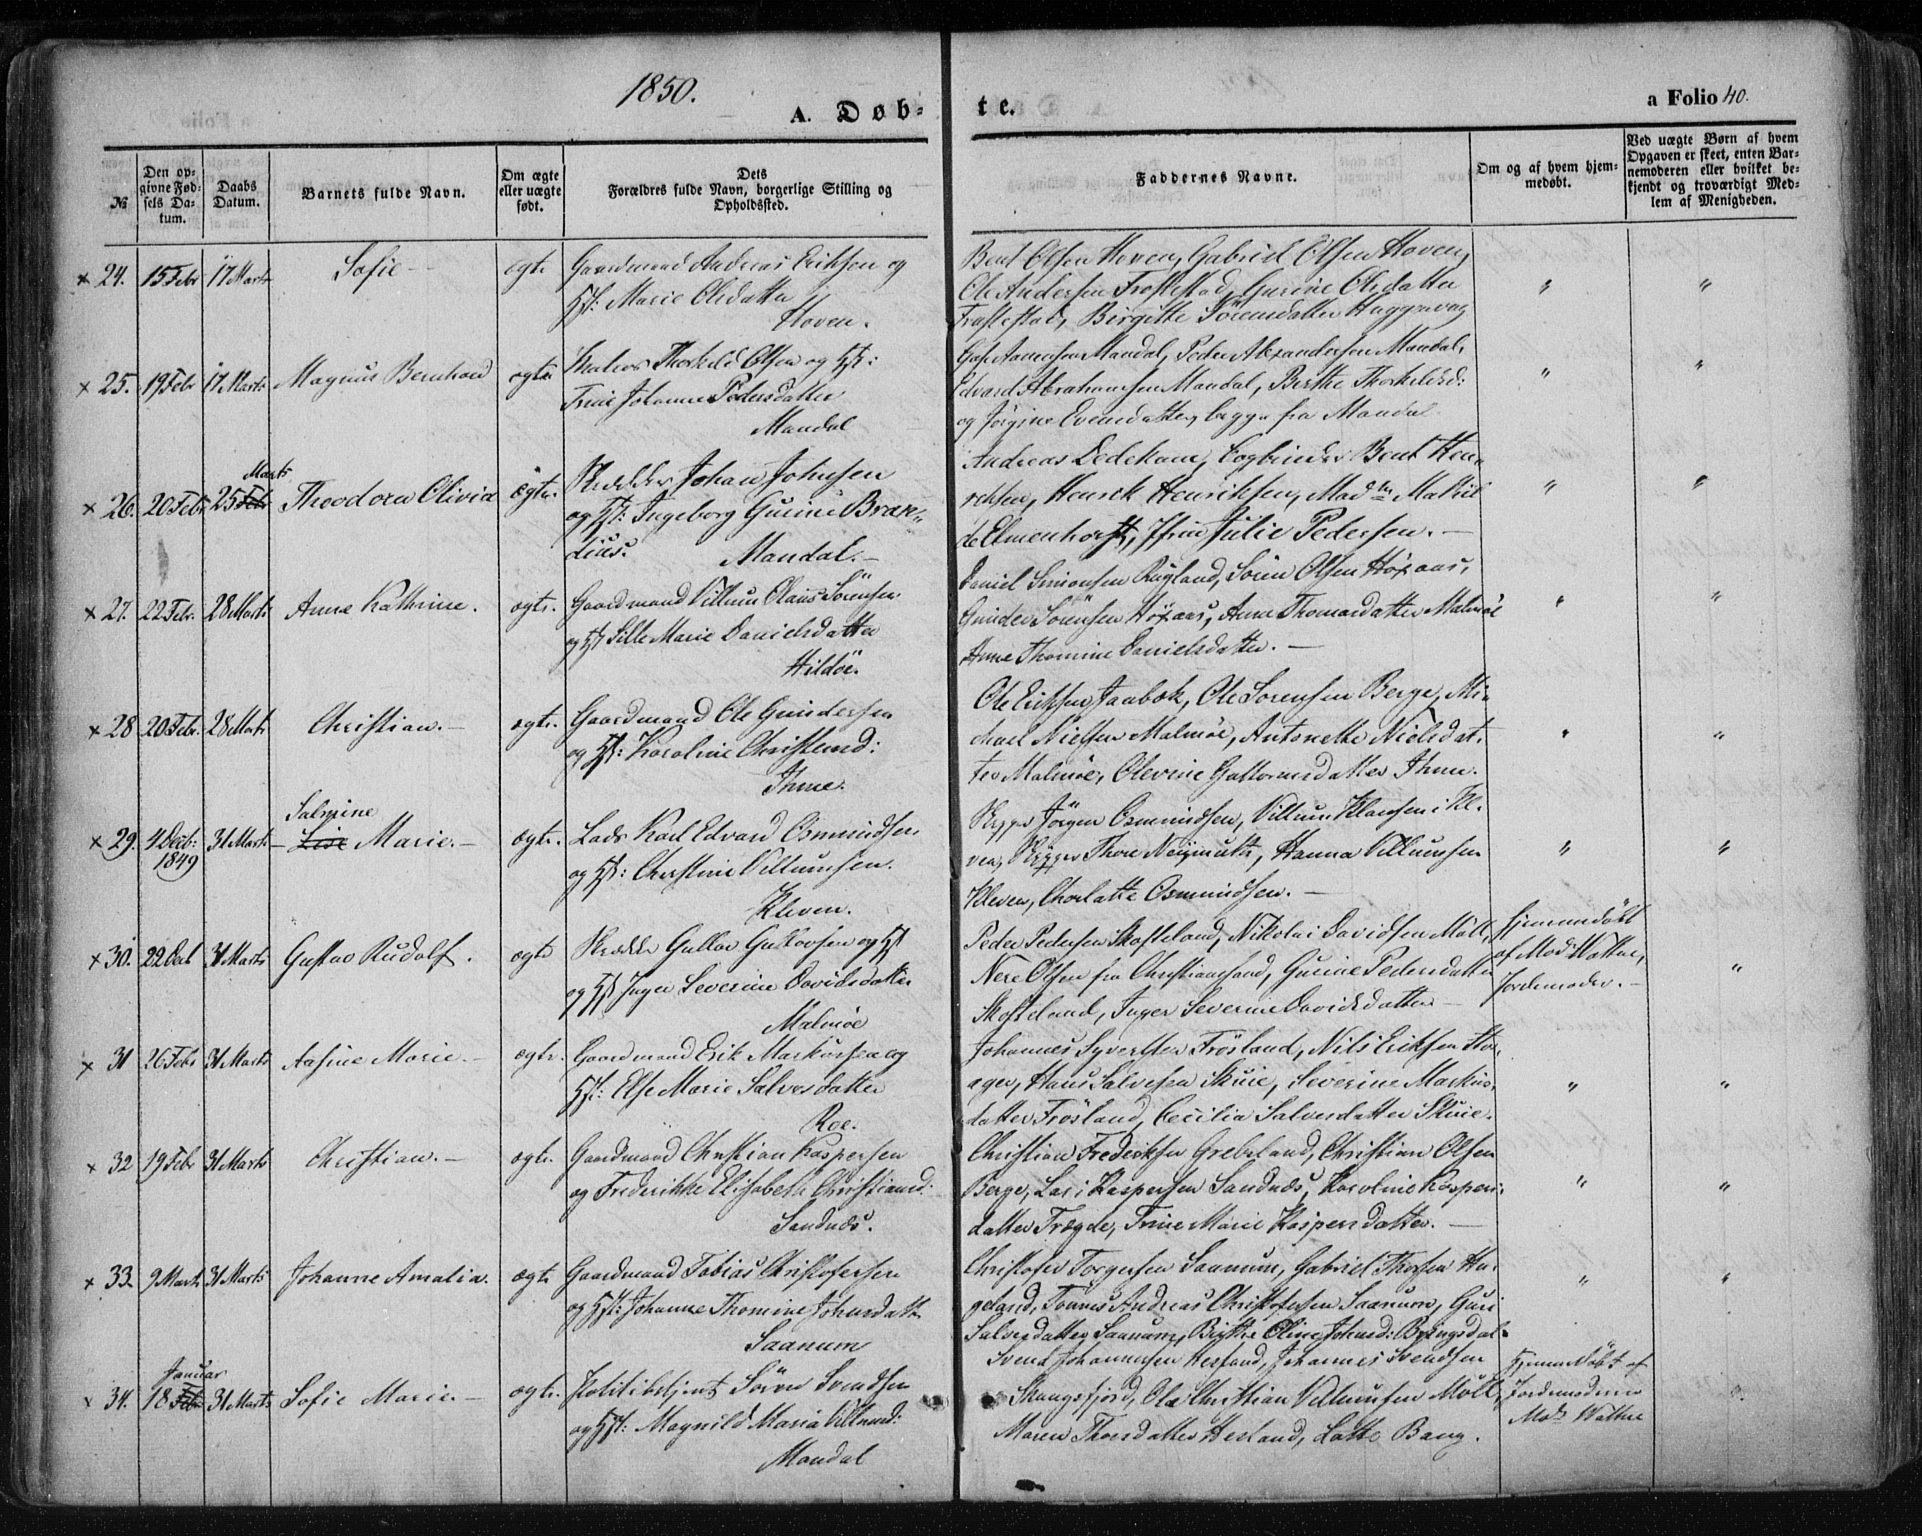 1850.
A. Døb-
te.
a Folio 40.
№
Den op-
givne Fød-
sels Da-
tum.
Daabs
Datum.
Barnets fulde Navn.
Om ægte
eller uægte
født.
Dets
Forældres fulde Navn, borgerlige Stilling og
Opholdssted.
Faddernes Navne.
Om og af hvem hjem-
medøbt.
Ved uægte Børn af hvem
Opgaven er skeet, enten Bar-
nemoderen eller hvilket be-
kjendt og troværdigt Med-
lem af Menigheden.
× 24. 15 Febr 17 Marts Sofie ægte Gaardmand Andreas Eriksen og
Hst: Marie Olsdatter
Hoven.
Bent Olsen Hoven, Gabriel Olsen Hoven,
Ole Andersen Frostestad, Gurine Olsdatter
Frostestad, Birgitte Sörensdatter Haggevog
× 25. 19 Febr 17 Marts Magnus Bernhard ægte Thorkild Olsen og Hst:
Trine Johanne Pedersdatter
Mandal
Aanensen Mandal, Peder Alexandersen Mandal,
Edvard Abrahamsen Mandal, Birthe Thorkildsd:
og Jørgine Evensdatter, begge fra Mandal
× 26. 20 Febr 25 Febr Marts Theodora Olivia ægte. Skrædder Johan Johnsen
og Hst: Ingeborg Gurine Bran-
dius. Mandal.—
Andreas Dedekam, Bogbinder Bent Hen-
richsen, Henrik Henriksen, Mad Mathil
de Elmenhorst, Jfru Julie Pedersen.—
× 27. 22 Febr. 28 Marts Anne Kathrine. ægte. Gaardmand Villum Olaus Sörensen
og Hst Sille Marie Danielsdatter
Hildöe.
Daniel Simonsen Rugland, Sören Olsen Höxaas,
Gunder Sörensen Höxaas, Anne Thomasdatter Malmöe
Anne Thomine Danielsdatter.—
× 28 20 Febr. 28 Marts Christian.— ægte. Gaardmand Ole Gundersen
og Hst: Karoline Christensd:
Ihme.
Ole Eriksen Jaabæk, Ole Sorensen Berge, Mi-
chael Nielsen Malmöe, Antonette Nielsdat-
ter Malmöe, Olevine Guttormsdatter Ihme.
× 29. 4 Decb: 1849 31 Marts Salmine
Lise Marie.— ægte. Lods Karl Edvard Osmundsen
og Hst: Christine Villumsen.
Kleven.
Jörgen Osmundsen, Villum Klausen i Kl.
ven, Thore Neumuth, Hanna Villumsen
Kleven, Charlotte Osmundsen.—
× 30. 22 Decb 31 Marts Gustav Rudolf. ægte Skrædder Gullov Gullovsen og Hst
og Hst Inger Severine Davidsdatter
Malmöe
Peder Pedersen Skofteland, Nikolai Davidsen Möll,
Nere Olsen fra Christianssand, Gurine Pedersdatter
Skofteland, Inger Severine Davidsdatter—
Hjemmedøbt
af Mad Wattne,
Jordemoder.—
× 31 26 Febr 31 Marts Aasine Marie.— ægte. Gaardmand Erik Markussen og
Hst. Else Marie Salvesdatter
Roe.
Johannes Syvertsen Frösland, Nils Eriksen
Hans Salvesen Skuie, Severine Markus-
datter Frösland, Cecilia Salvesdatter Skuie.
× 32 19 Febr 31 Marts Christian.— ægte. Gaardmand Christian Kaspersen
og Frederikke Elisabeth Christiansd:
Sandnæs.
Christian Frederiksen Grebeland, Christian Olsen
Berge, Lars Kaspersen Sandnæs, Karoline Kaspers-
datter Trægde, Trine Marie Kaspersdatter.—
× 33. 9 Marts 31 Marts Johanne Amalia. ægte Gaardmand Tobias Christofersen
og Hst: Johanne Thomine Johnsdatt
Saanum
Christofer Torgersen Saanum, Gabriel Thorsen Hu-
geland, Tönnes Andreas Christofersen Saanum, Guri
Salvesdatter Saanum, Birthe Oline Johnsd: Bringsdal
× 34. 18 Febr Januar 31 Marts Sofie Marie.— ægte. Politibetjent Sören Svendsen
og Hst: Magnild Maria Villumsd:
Mandal
Svend Johannesen Hesland, Johannes Svendsen
Skaugsfjord, Ole Christian Villumsen Möll,
Maren Thorsdatter Hesland, Lotte Bang.
Hjemmedøbt af
Jordemoderen
Mad Wattne